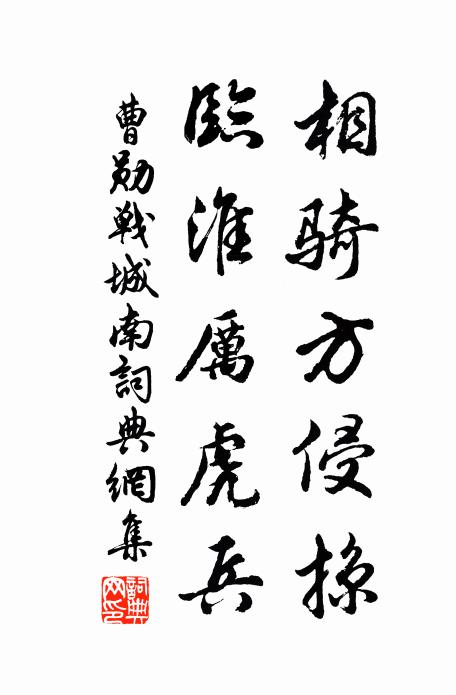 相騎方侵掠
臨淮厲虎兵
曹勛戰城南詞典網集
詞典网印